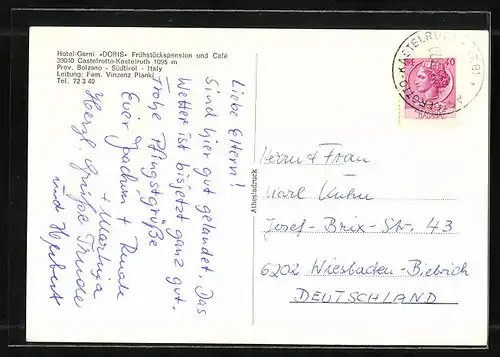 Hotel-Garni »DORIS« Frühstückspension und Café
39040 Castelrotto-Kastelruth 1095 m
Prov. Bolzano - Südtirol - Italy
Leitung: Fam. Vinzenz Plankl
Tel. 72 3 40
Liebe Eltern!
Sind hier gut gelandet. Das
Wetter ist bisjetzt ganz gut.
Frohe Pfingstgrüße
Euer Joachim +
+
Herzl. Grüße Trude
und Herbert
Herrn + Frau
Karl Kuhn
Josef-Brix-Str. 43
6202 Wiesbaden-Biebrich
DEUTSCHLAND